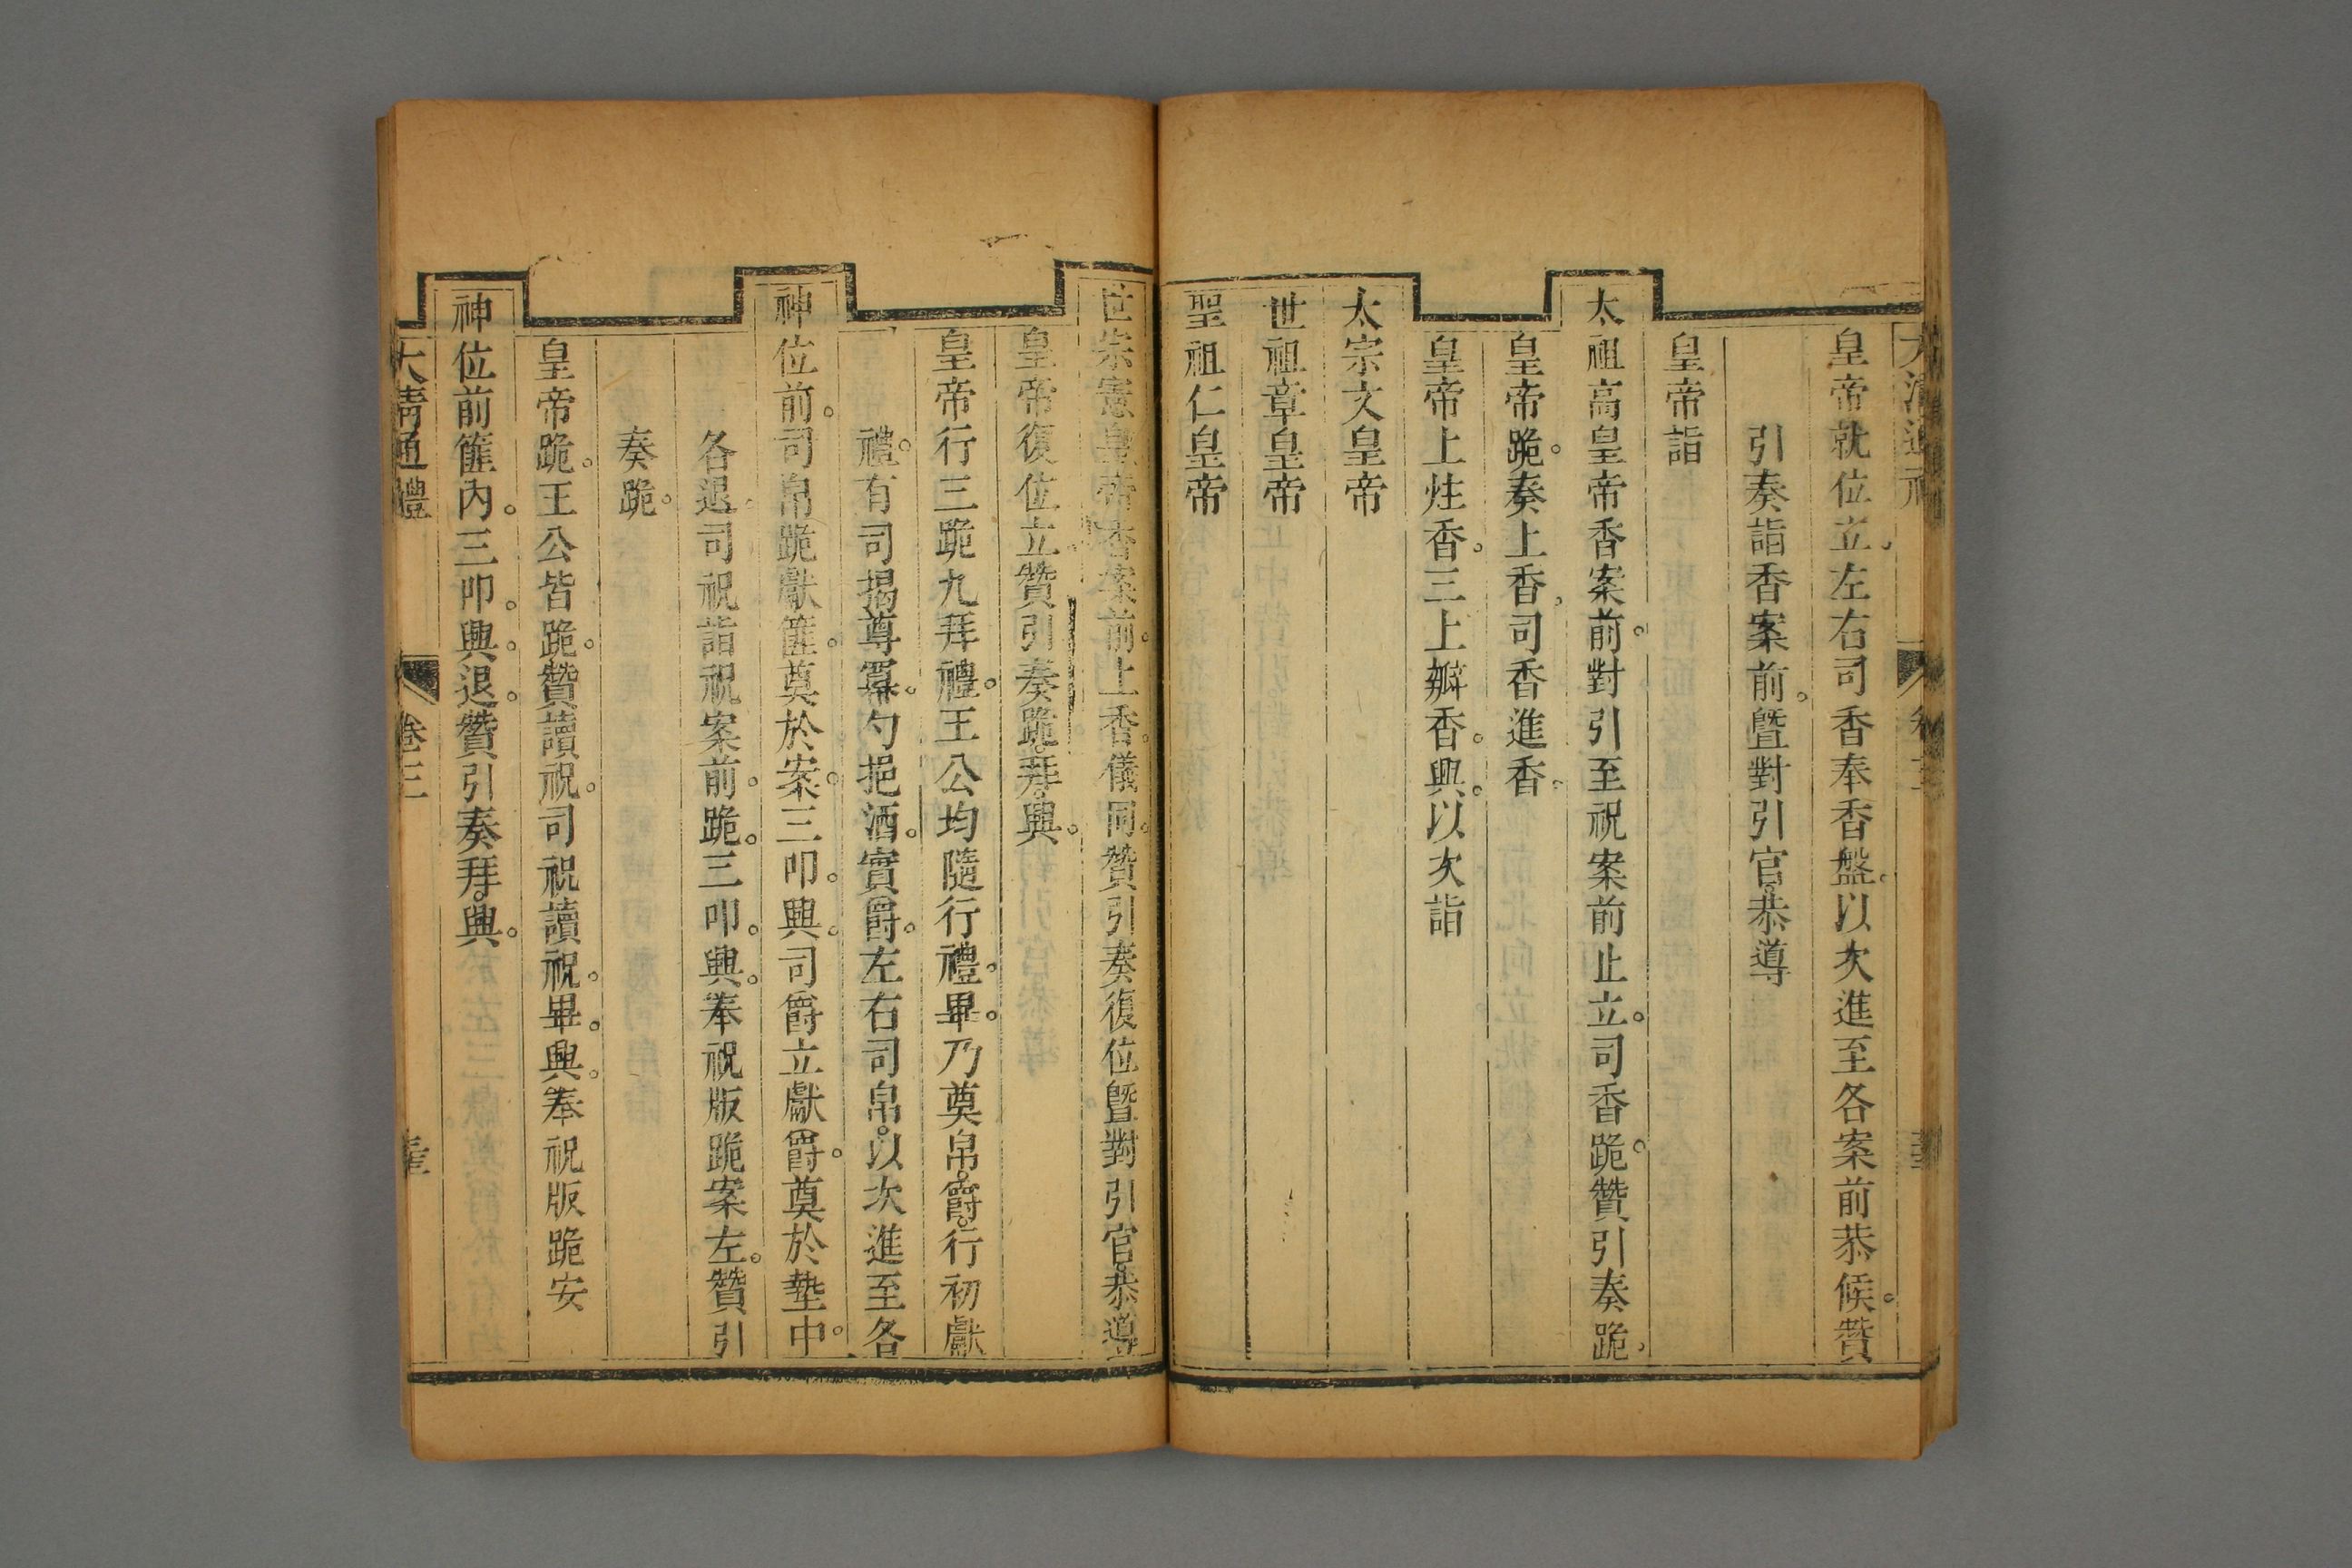 皇帝就位立。左右司香奉香盤。以次進至各案前恭候。贊
引奏詣香案前。曁對引官。恭導
皇帝詣
太祖高皇帝香案前。對引至祝案前止立。司香跪。贊引奏跪。
皇帝跪。奏上香。司香進香。
皇帝上炷香。三上瓣香。興。以次詣
太宗文皇帝
世祖章皇帝
聖祖仁皇帝
世宗憲皇帝香案前。上香。儀同。贊引奏復位曁對引官。恭導
皇帝復位立贊引奏跪。拜。興。
皇帝行三跪九拜禮。王公均隨行禮。畢。乃奠帛。爵。行初獻
禮。有司揭尊冪。勺挹酒。實爵。左右司帛。以次進至各
神位前。司帛跪獻篚。奠於案。三叩。興。司爵立獻爵。奠於墊中。
各退。司祝詣祝案前。跪。三叩。興。奉祝版跪案左。贊引
奏跪。
皇帝跪。王公皆跪。贊讀祝。司祝讀祝。畢。興。奉祝版跪安
神位前篚內。三叩。興。退。贊引奏拜。興。
大清通禮
卷三